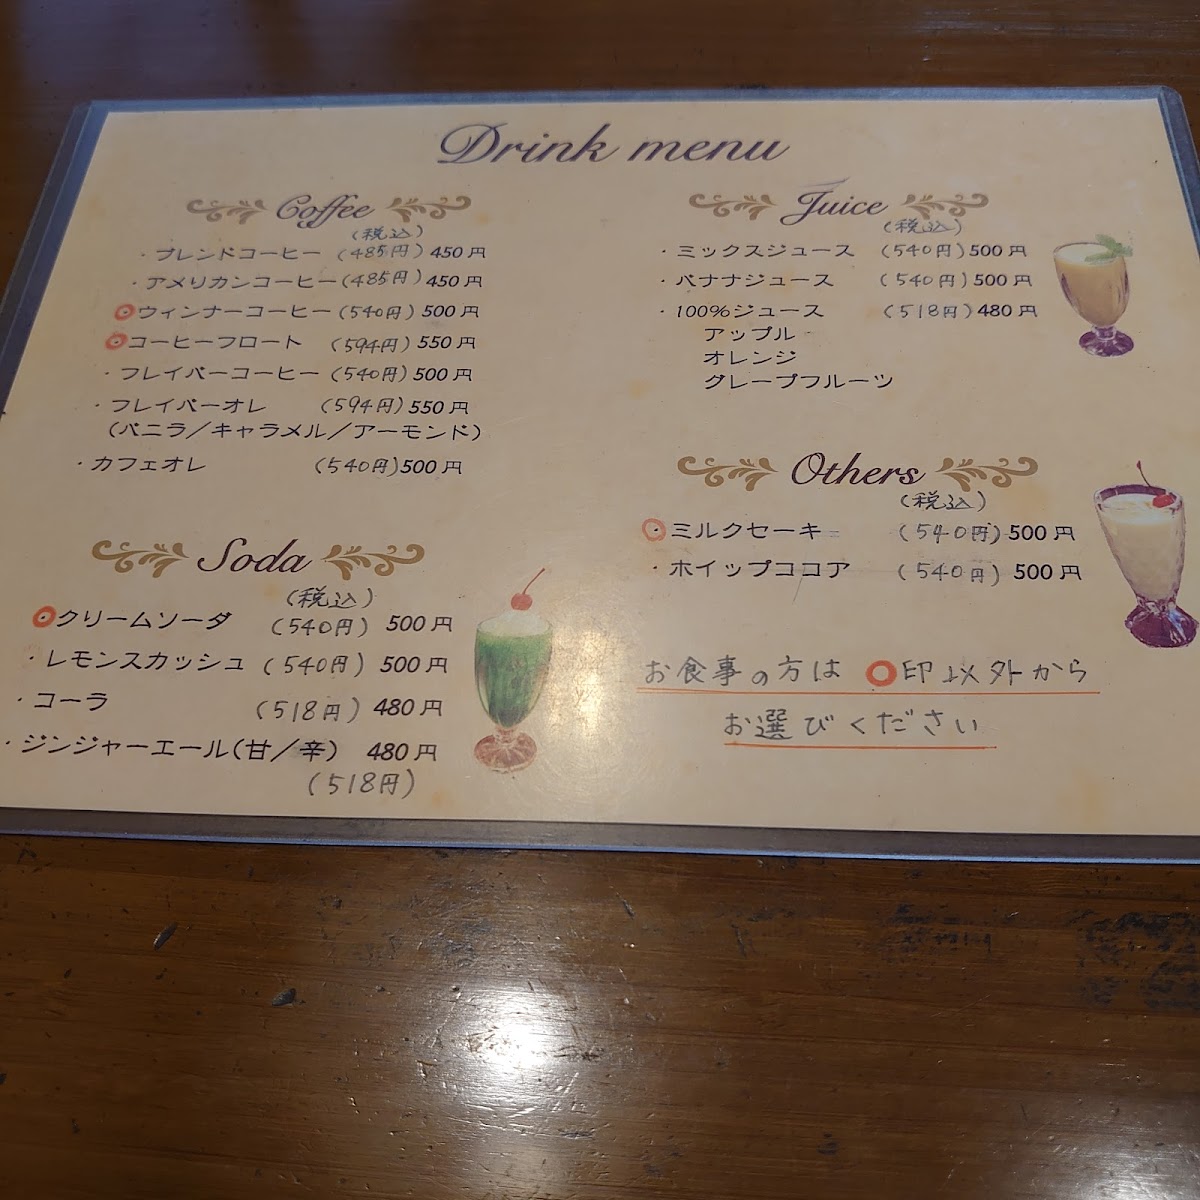 Drink menu
Coffee
(税込)
・ブレンドコーヒー (485円) 450円
・アメリカンコーヒー (485円) 450円
・ウィンナーコーヒー (540円) 500円
・コーヒーフロート (594円) 550円
・フレイバーコーヒー (540円) 500円
・フレイバーオレ (594円) 550円
(バニラ/キャラメル/アーモンド)
・カフェオレ (540円) 500円
Soda
(税込)
・クリームソーダ (540円) 500円
・レモンスカッシュ (540円) 500円
・コーラ (518円) 480円
・ジンジャーエール(甘/辛) 480円
(518円)
Juice
(税込)
・ミックスジュース (540円) 500円
・バナナジュース (540円) 500円
・100%ジュース (518円) 480円
アップル
オレンジ
グレープフルーツ
Others
(税込)
・ミルクセーキ (540円) 500円
・ホイップココア (540円) 500円
お食事の方は ○印以外から
お選びください